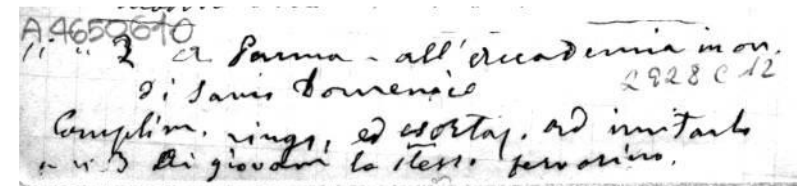 A4650610
" " 2 a Parma - all'Accademia in on.
di Savio Domenico
2928 C 12
Complim. ringr, ed esortaz. ad imitarlo
" " 3 Ai giovani lo stesso fervorino.